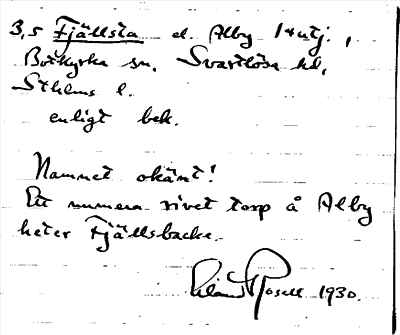 3,5 Fjällsta el. Alby 14utj.,
Botkyrka sn. Svartlösa hd,
Sthlms l.
enligt bek.
Namnet okänt!
Ett numera rivet torp å Alby
heter Fjällsbacke.
Rosell 1930.